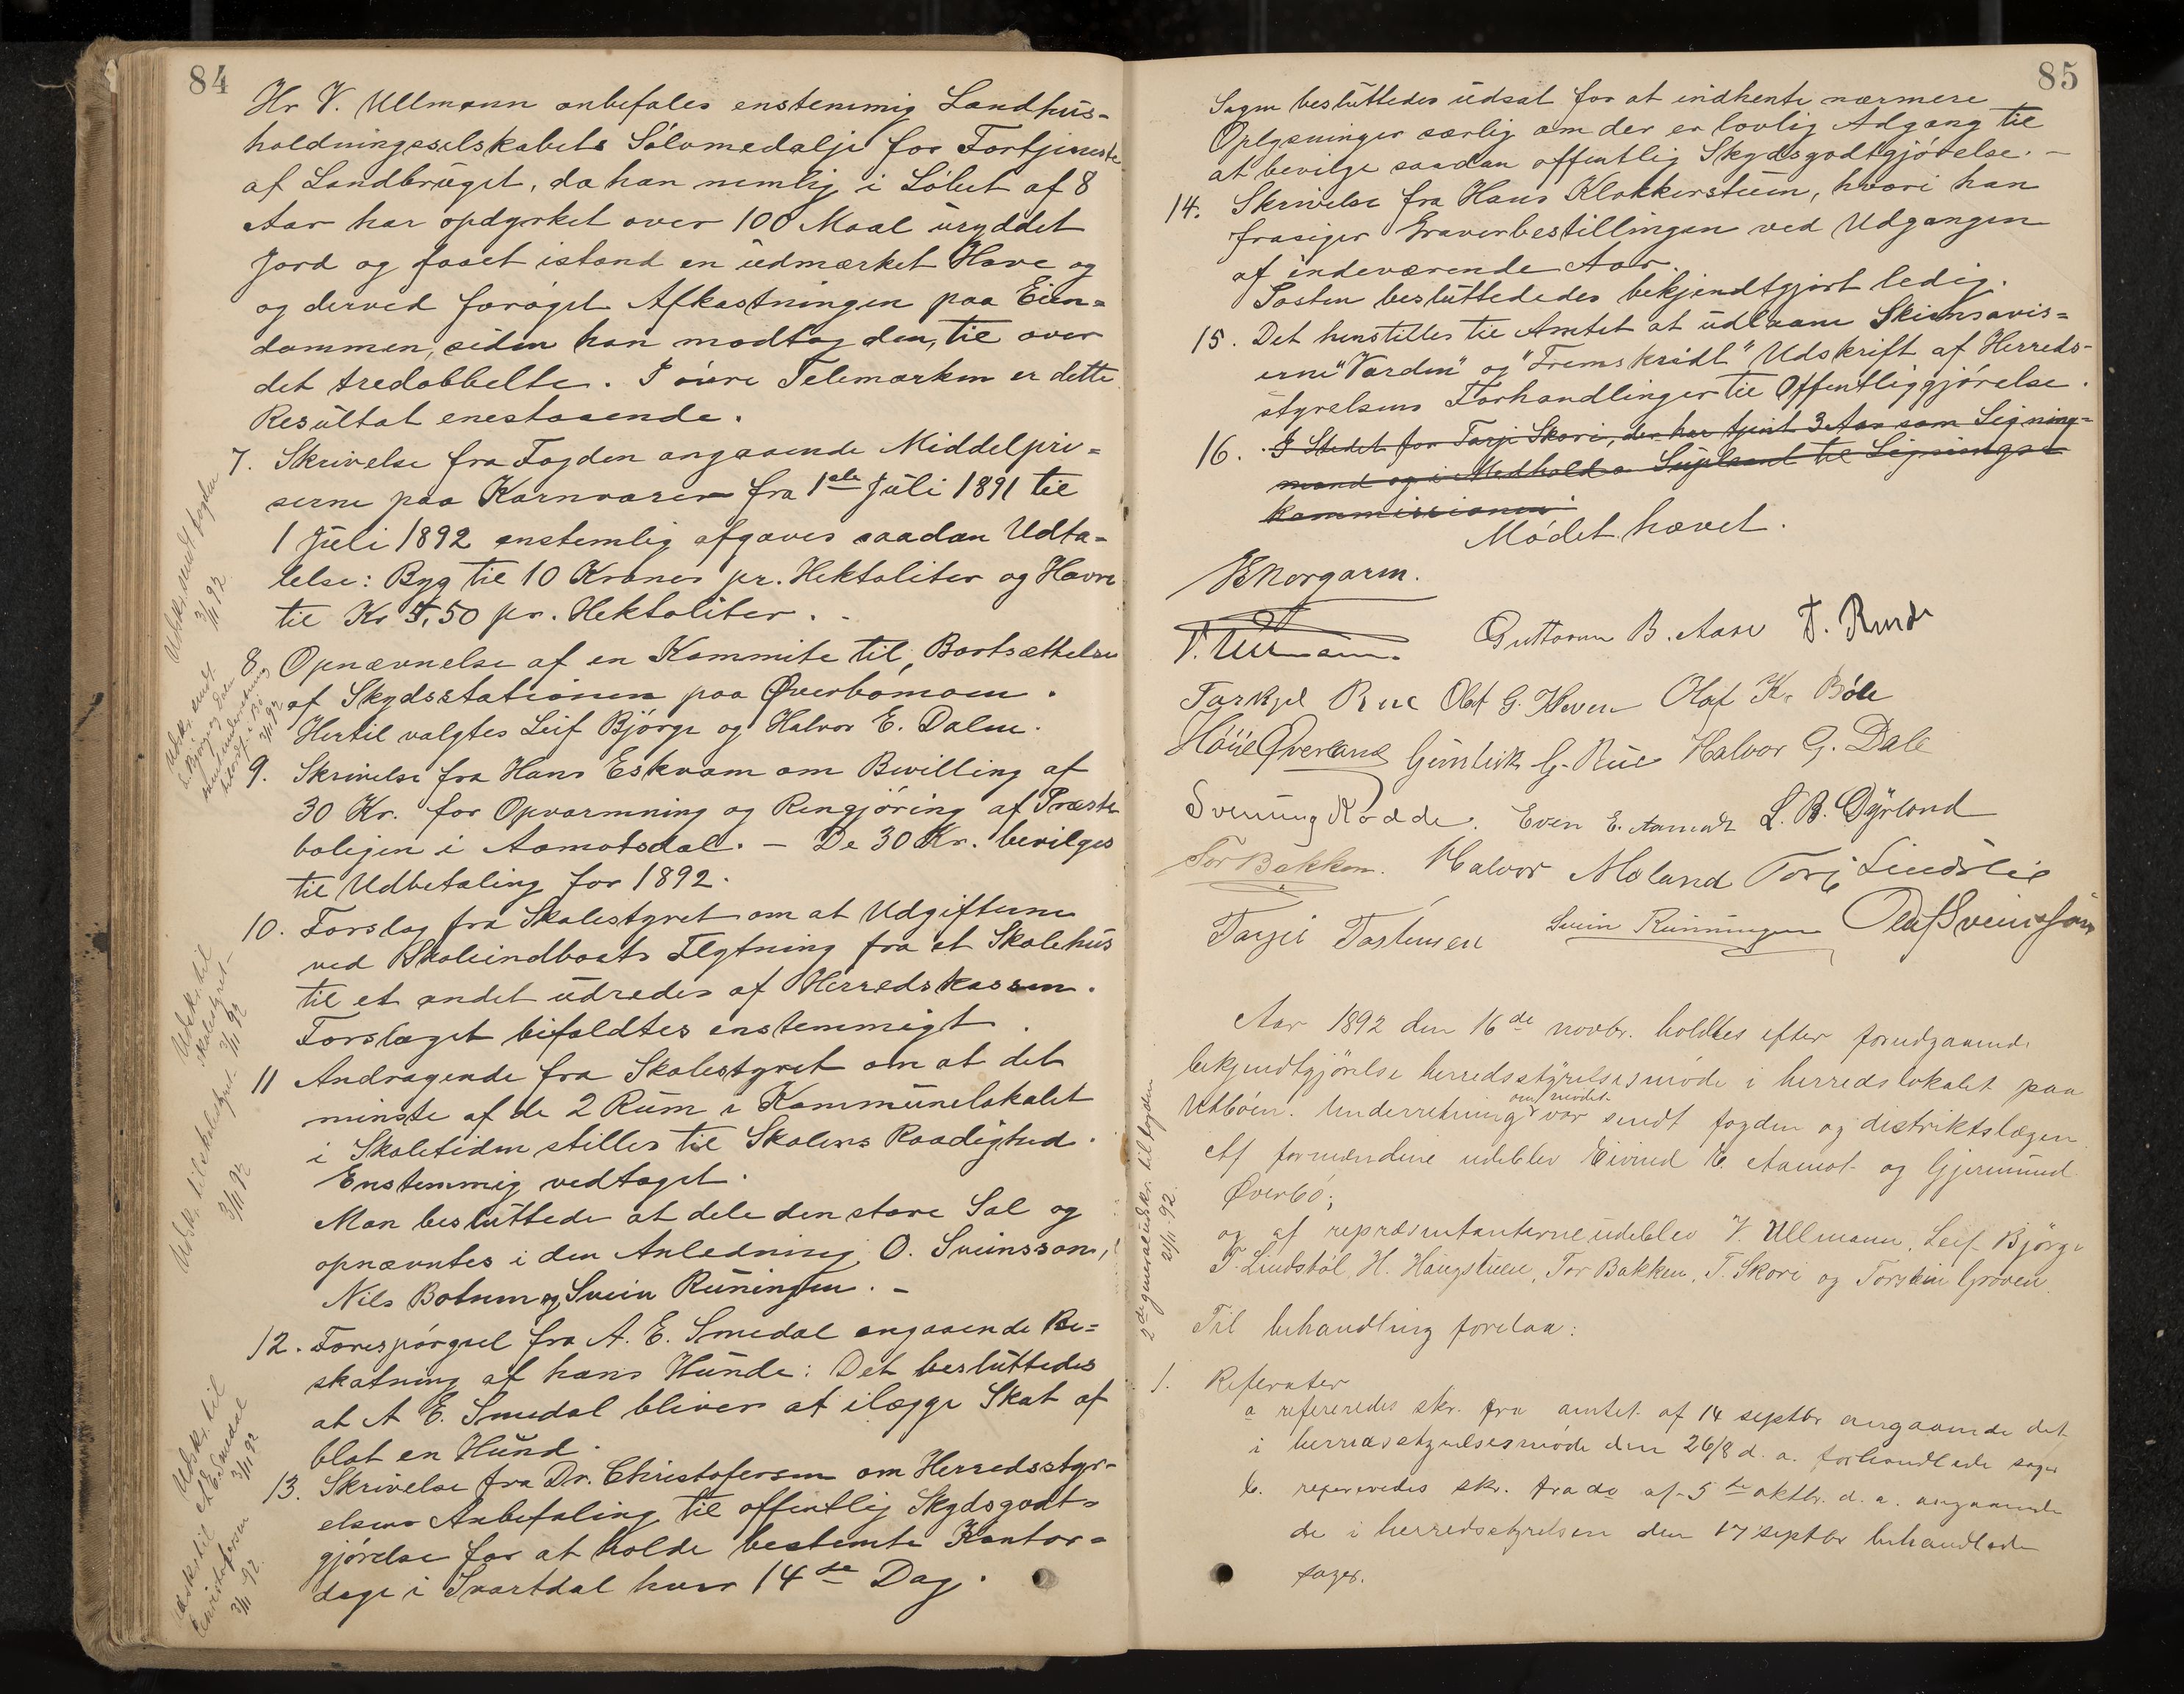 84
Hr V. Ullmann anbefales enstemmig Landhus-
holdningsselskabets Sølvmedalje for Fortjeneste
af Landbruget, da han nemlig i Løbet af 8
Aar har opdyrket over 100 Maal uryddet
Jord og faaet istand en udmærket Have og
og derved forøget Afkastningen paa Eien=
dommen, siden han modtog den, til over
det tredobbelte. I øvre Telemarken er dette
Resultat enestaaende.
7. Skrivelse fra Fogden angaaende Middelpri=
serne paa Kornvarer fra 1ste Juli 1891 til
1 Juli 1892 enstemlig afgaves saadan Udta-
lelse: Byg til 10 Kroner pr. Hektoliter og Havre
til Kr 5,50 pr. Hektoliter.
Udskr. sendt fogden
3/11 92
8. Opnævnelse af en Kommite til Bortsættelse
af Skydsstationen paa Øverbømoen.
Hertil valgtes Leif Bjørge og Halvor E. Dalen.
Udskr. sendt
L. Bjørge og Dalen
3/11 92
9. Skrivelse fra Hans Eskvam om Bevilling af
30 Kr. for Opvarmning og Rengjøring af Præste
boligen i Aamotsdal. - De 30 Kr. bevilges
til Udbetaling for 1892.
10. Forslag fra Skolestyret om at Udgifterne
ved Skoleindboets Flytning fra et Skolehus
til et andet udredes af Herredskassen.
Forslaget bifaldtes enstemmigt.
Udskr. til
skolestyret
3/11 92
11 Andragende fra Skolestyret om at det
minste af de 2 Rum i Kommunelokalet
i Skoletiden stilles til Skolens Raadighed.
Enstemmig vedtaget.
Man besluttede at dele den store Sal og
opnævntes i den Anledning O. Sveinsson,
Nils Botnem og Svein Runingen. -
Udskr. til skolestyret
3/11 92
12. Forespørgsel fra A. E. Smedal angaaende Be=
skatning af hans Hunde: Det besluttedes
at A E. Smedal bliver at ilægge Skat af
blot en Hund.
Udskr. til
A E Smedal
3/11 92
13. Skrivelse fra Dr. Christofersen om Herredsstyr-
elsens Anbefaling til offentlig Skydsgodt-
gjørelse for at holde bestemte Kontor=
dage i Svartdal hver 14de Dag.
Udskr. til
Christofersen
3/11 92.
85
Sagen besluttedes udsat for at indhente nærmere
Oplysninger særlig om der er lovlig Adgang til
at bevilge saadan offentlig Skydsgodtgjørelse. -
14. Skrivelse fra Hans Klokkersteien, hvori han
frasiger Graverbestillingen ved Udgangen
af indeværende Aar.
Posten besluttededes bekjendtgjort ledig.
15. Det henstilles til Amtet at udlaane Skiensavis=
erne "Varden" og "Fremskridt" Udskrift af Herreds-
styrelsens Forhandlinger til Offentliggjørelse.
16. I Stedet for Tarje Skori, der har tjent 3 Aar som Ligning=
mand og i Medhold a Supleant til Lignings
kommissionen
Mødet hævet.
H Norgarm.
V. Ullmann. Guttorm B. Aase T. Runde
Tarkjel Rue Olaf G. Kleven Olaf K. Bøle
Høie Øverland Gunleik G. Rue Halvor G. Dale
Svenung Rodde. Even E. Aamodt L. B. Dyrland
Tor Bakken. Halvor Moland Torj Lindslie
Tarjei Tostensen Svein Runningen Olaf Sveinsson
Aar 1892 den 16de novbr. holdtes efter forudgaaende
bekjendtgjörelse herredsstyrelsesmöde i herredslokalet paa
Utböen. Underretning om mödet var sendt fogden og distriktslægen.
Af formændene udeblev Eivind K. Aamot og Gjermund
Øverbö;
og af repræsentanterne udeblev V. Ullmann, Leif Björge
T. Lindstöl, H. Haugstuen, Tor Bakken, T. Skori og Torstein Groven.
Til behandling forelaa:
2de generaludskr. til fogden
21/11 92.
1. Referater
a refereredes skr. fra amtet af 14 septbr angaaende det
i herredsstyrelsesmöde den 26/8 d. a. forhandlede sager
b. refereredes skr. fra do af 5te oktbr. d. a. angaaende
de i herredsstyrelsen den 17 septbr behandlede
sager.